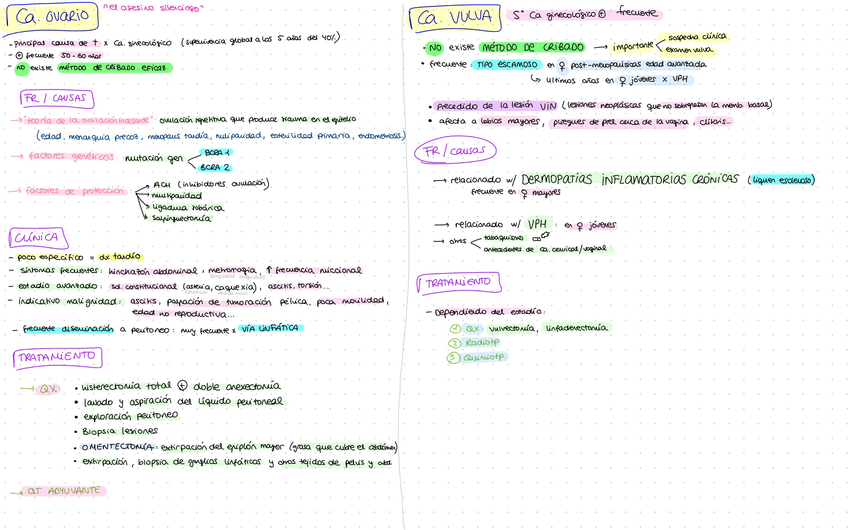 Ca. OVARIO "el asesino silencioso"
- principal causa de † x Ca. ginecológico (supervivencia global a los 5 años del 40%)
- ⊕ frecuente 50-60 años
- NO existe MÉTODO DE CRIBADO EFICAZ
FR / CAUSAS
→ "teoría de la ovulación incesante": ovulación repetitiva que produce trauma en el epitelio
(edad, menarquia precoz, menopaus tardía, nuliparidad, esterilidad primaria, endometriosis)
→ factores genéticos: mutación gen
BCRA-1
BCRA 2
→ factores de protección:
ACH (inhibidores ovulación)
multiparidad
ligadura tubárica
salpinguectomía
CLÍNICA
- poco específico = dx tardío
- síntomas frecuentes: hinchazón abdominal, metrorragia, ↑ frecuencia miccional
- estadio avanzado: sd. constitucional (astenia, caquexia), ascitis, torsión...
- indicativo malignidad: ascitis, palpación de tumoración pélvica, poca movilidad,
edad no reproductiva...
- frecuente diseminación a peritoneo: muy frecuente x VÍA LINFÁTICA
TRATAMIENTO
→ QX
• histerectomía total ⊕ doble anexectomía
• lavado y aspiración del líquido peritoneal
• exploración peritoneo
• Biopsia lesiones
• OMENTECTOMÍA: extirpación del epiplón mayor (grasa que cubre el abdomen)
• extirpación, biopsia de ganglios linfáticos y otros tejidos de pelvis y abd
→ QT ADYUVANTE
Ca. VULVA 5º Ca ginecológico ⊕ frecuente
• NO existe MÉTODO DE CRIBADO → importante
sospecha clínica
examen vulva
• frecuente: TIPO ESCAMOSO en ♀ post-menopáusicas edad avanzada
↳ últimos años en ♀ jóvenes x VPH
• precedido de la lesión VIN (lesiones neoplásicas que no sobrepasan la memb basal)
• afecta a labios mayores, pliegues de piel cerca de la vagina, clítoris...
FR / causas
→ relacionado w/ DERMOPATÍAS INFLAMATORIAS CRÓNICAS (liquen escleroso)
frecuente en ♀ mayores
→ relacionado w/ VPH: en ♀ jóvenes
→ otros
tabaquismo
antecedentes de Ca. cervical/vaginal
TRATAMIENTO
- Dependiendo del estadio:
1 QX vulvectomía, linfadenectomía
2 Radiotp
3 Quimiotp